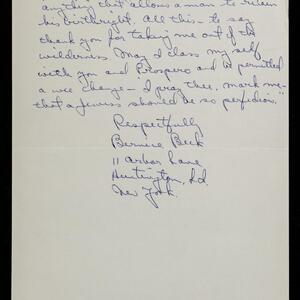 anything that allows a man to retain
his birthright. All this - to say
thank you for taking me out of the
wilderness. May I class my self
with you and Prospero and be permitted
a wee change - I pray thee, mark me -
that a jewess should be so perfidious."
Respectfully
Bernice Beck
11 Arbor Lane
Huntington, L.I.
New York.